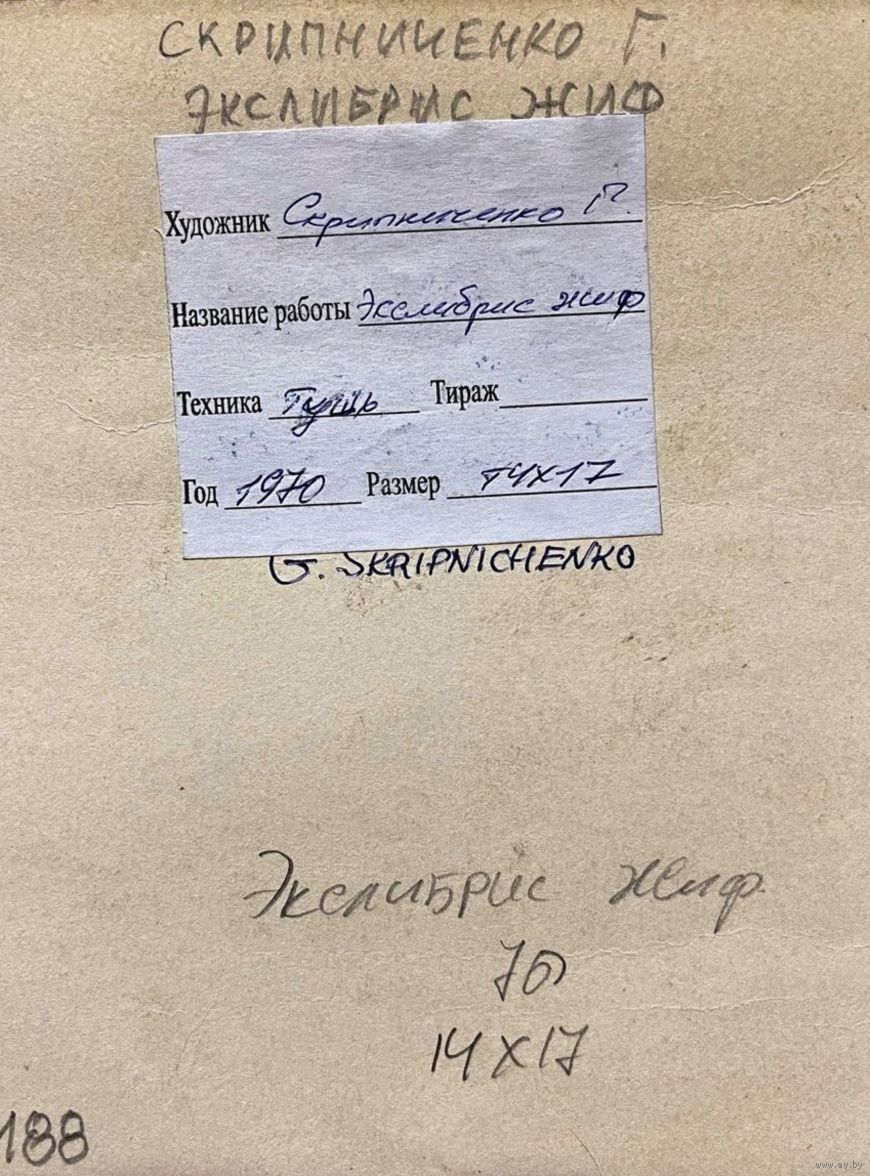 СКРИПНИЧЕНКО Г.
ЭКСЛИБРИС ЖИФ
Художник Скрипниченко Г.
Название работы Экслибрис жиф
Техника Тушь Тираж
Год 1970 Размер 14х17
G. SKRIPNICHENKO
Экслибрис жиф.
70
14х17
188
www.ay.by